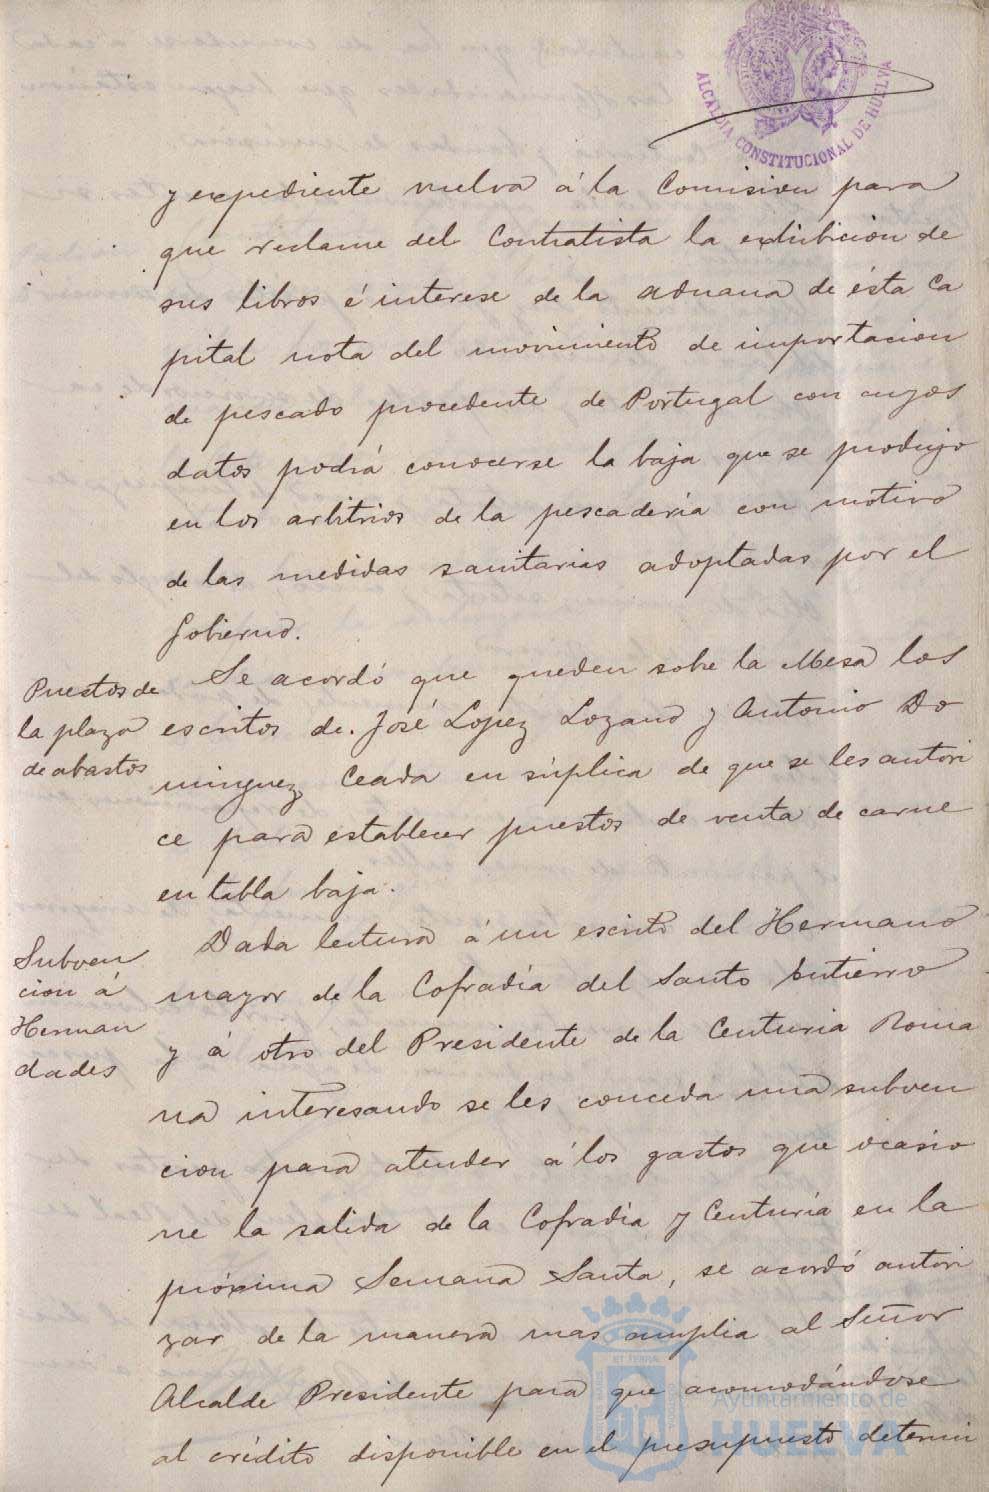 ALCALDIA CONSTITUCIONAL DE HUELVA
y expediente vuelva á la Comision para
que reclame del Contratista la exhibicion de
sus libros é interese de la aduana de ésta Ca
pital nota del movimiento de importacion
de pescado procedente de Portugal con cuyos
datos podrá conocerse la baja que se produjo
en los arbitrios de la pescaderia con motivo
de las medidas sanitarias adoptadas por el
Gobierno.
Puestos de
la plaza
de abastos
Se acordó que queden sobre la Mesa los
escritos de José Lopez Lozano y Antonio Do
minguez Ceada en súplica de que se les autori
ce para establecer puestos de venta de carne
en tabla baja.
Subven
cion á
Herman
dades
Dada lectura á un escrito del Hermano
mayor de la Cofradía del Santo Entierro
y á otro del Presidente de la Centuria Roma
na interesando se les conceda una subven
cion para atender á los gastos que ocasio
ne la salida de la Cofradía y Centuría en la
próxima Semana Santa, se acordó autori
zar de la manera mas amplia al Señor
Alcalde Presidente para que acomodándose
al crédito disponible en el presupuesto determi
Ayuntamiento de
HUELVA